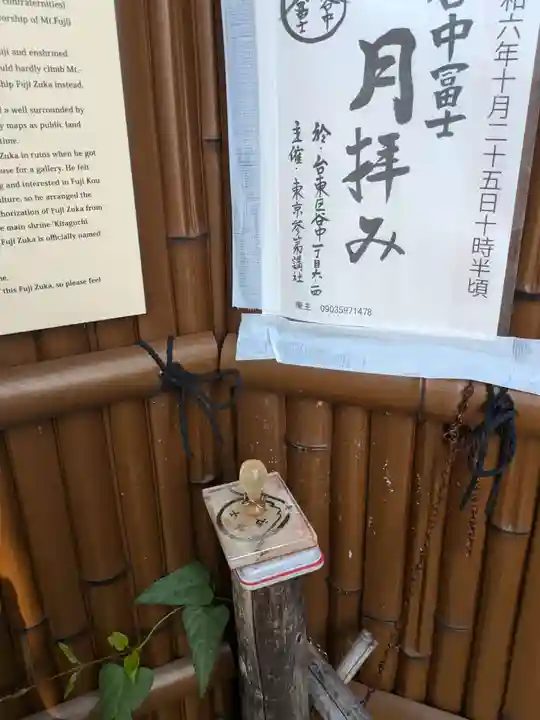 contraternities)
worship of Mt.Fuji
Fuji and enshrined
could hardly climb Mt.
Fuji Zuka instead.
a well surrounded by
maps as public land
time.
Zuka in ruins when he got
house for a gallery. He felt
and interested in Fuji Kou
culture, so he arranged the
authorization of Fuji Zuka from
main shrine 'Kitaguchi
Fuji Zuka is officially named
this Fuji Zuka, so please feel
和六年十月二十五日十時半頃
谷中冨士
月拝み
谷中
冨士
於・台東区谷中一丁目六一四
主催・東京参第講社
庵主 09035971478